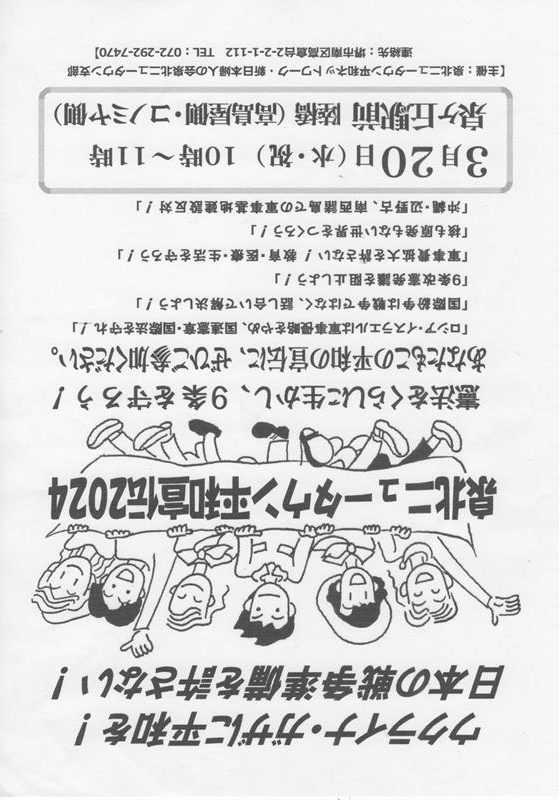 ウクライナ・ガザに平和を！
日本の戦争準備を許さない！
泉北ニュータウン平和宣伝2024
憲法をくらしに生かし、９条を守ろう！
あなたもこの平和の宣伝に、ぜひご参加ください。
「ロシア・イスラエルは軍事侵略をやめ、国連憲章・国際法を守れ！」
「国際紛争は戦争ではなく、話し合いで解決しよう！」
「９条改憲発議を阻止しよう！」
「軍事費拡大を許さない！教育・医療・生活を守ろう！」
「核も原発もない世界をつくろう！」
「沖縄・辺野古、南西諸島での軍事基地建設反対！」
3月20日（水・祝） 10時～11時
泉ヶ丘駅前 陸橋（高島屋側・コノミヤ側）
【主催：泉北ニュータウン平和ネットワーク・新日本婦人の会泉北ニュータウン支部
連絡先：堺市南区高倉台2-2-1-112 TEL：072-292-7470】